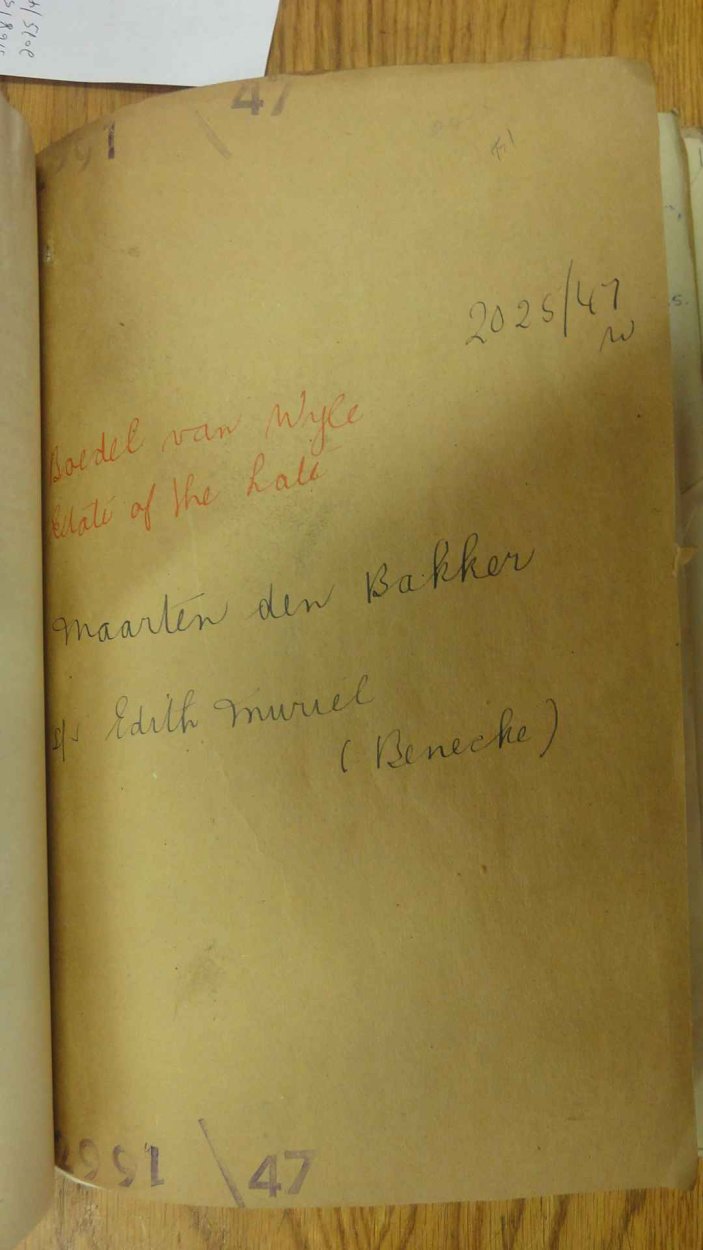 47
2025/47
Boedel van Wyle
Estate of the Late
Maarten den Bakker
s/s Edith Muriel
(Benecke)
1661 / 47